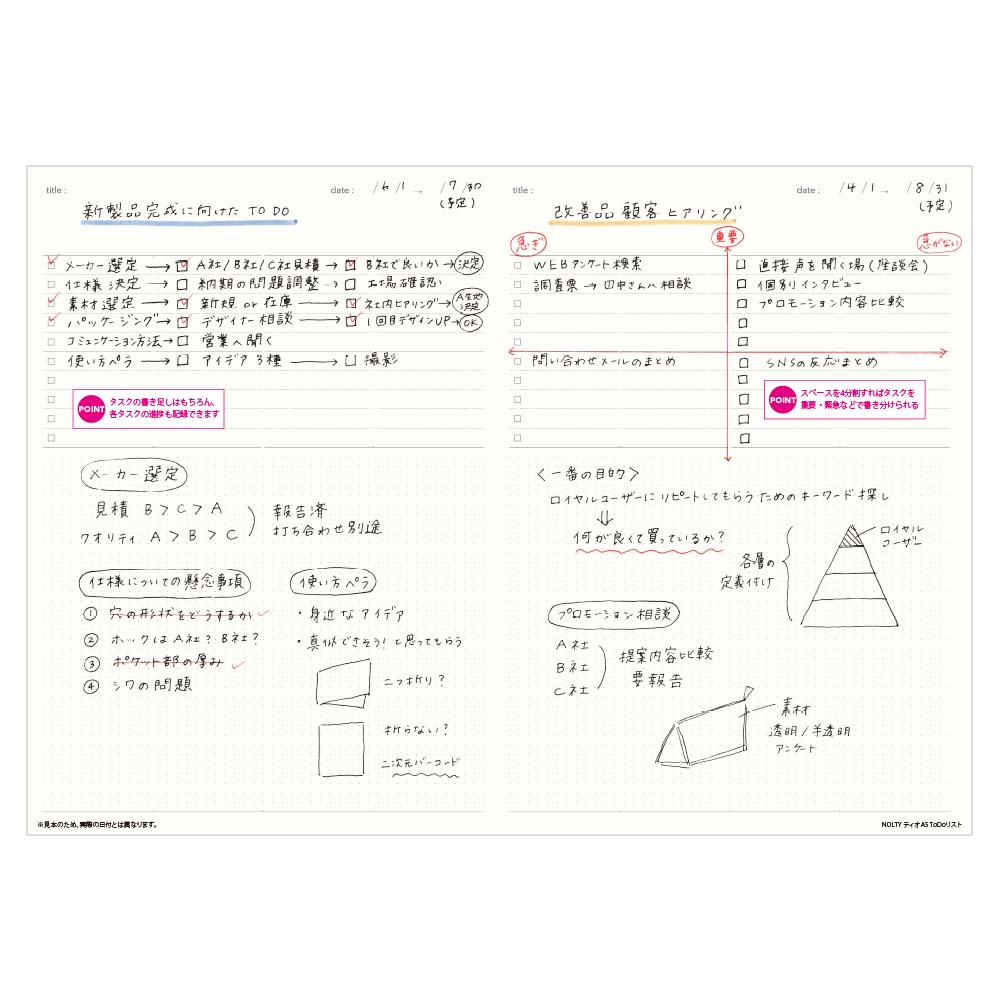 title :
date : /6 /1 → /7 /30
(予定)
新製品完成に向けた TO DO
メーカー選定 → A社/B社/C社見積 → B社で良いか → 決定
仕様決定 → 納期の問題調整 → 工場確認
素材選定 → 新規 or 在庫 → 社内ヒアリング → A生地決定
パッケージング → デザイナー相談 → 1回目デザインUP → OK
コミュニケーション方法 → 営業へ聞く
使い方ペラ → アイデア3種 → 撮影
POINT
タスクの書き足しはもちろん、
各タスクの進捗も記録できます
メーカー選定
見積 B > C > A
クオリティ A > B > C
報告済
打ち合わせ別途
仕様についての懸念事項
① 穴の形状をどうするか
② ホックは A社? B社?
③ ポケット部の厚み
④ シワの問題
使い方ペラ
・身近なアイデア
・真似できそう!と思ってもらう
二つ折り?
折らない?
二次元バーコード
※見本のため、実際の日付とは異なります。
title :
date : /4 /1 → /8 /31
(予定)
改善品 顧客 ヒアリング
急ぎ
重要
急がない
WEBアンケート検索
調査票 → 田中さんへ相談
問い合わせメールのまとめ
直接声を聞く場(座談会)
個別インタビュー
プロモーション内容比較
SNSの反応まとめ
POINT
スペースを4分割すればタスクを
重要・緊急などで書き分けられる
〈一番の目的〉
ロイヤルユーザーにリピートしてもらうためのキーワード探し
⇓
何が良くて買っているか?
各層の
定義付け
ロイヤル
ユーザー
プロモーション相談
A社
B社
C社
提案内容比較
要報告
素材
透明/半透明
アンケート
NOLTY ティオA5 ToDoリスト